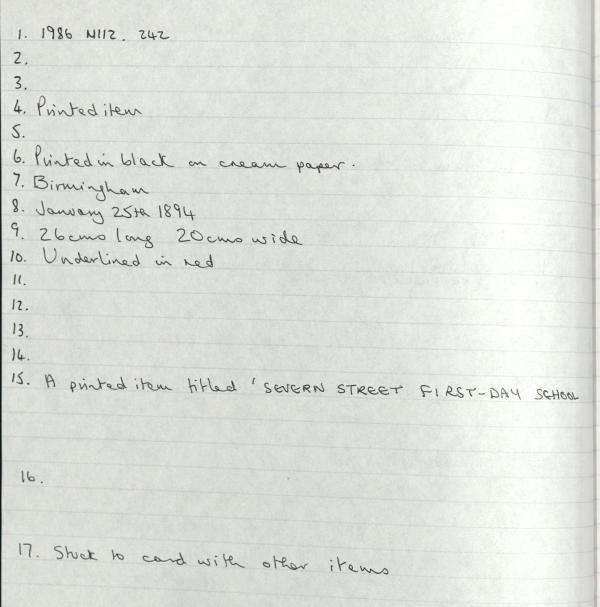 1. 1986 N112. 242
2.
3.
4. Printed item
5.
6. Printed in black on cream paper.
7. Birmingham
8. January 25th 1894
9. 26cms long 20cms wide
10. Underlined in red
11.
12.
13.
14.
15. A printed item titled 'SEVERN STREET FIRST-DAY SCHOOL
16.
17. Stuck to card with other items